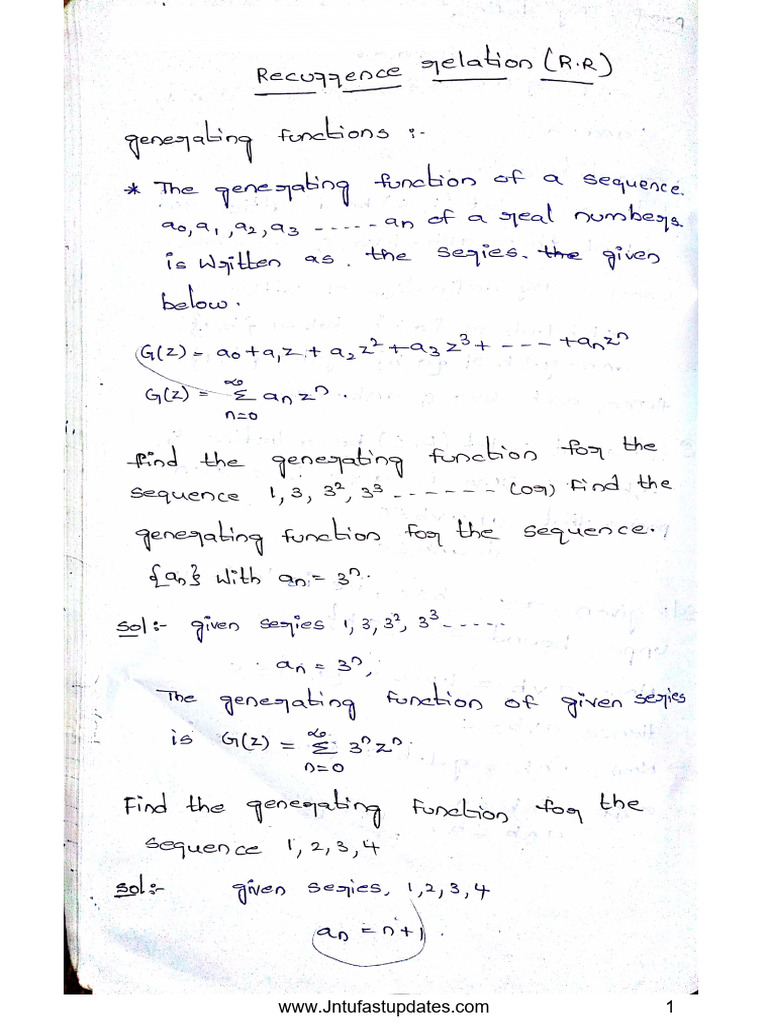 Recurrence relation (R.R)
generating functions :-
* The generating function of a sequence.
a0, a1, a2, a3 ----- an of a real numbers.
is written as. the series. the given
below.
G(z) = a0 + a1z + a2z² + a3z³ + --- + anzⁿ
G(z) = ∞Σn=0 an zⁿ.
find the generating function for the
sequence 1, 3, 3², 3³ ------ (or) find the
generating function for the sequence.
{an} with an = 3ⁿ.
sol:- given series 1, 3, 3², 3³ -----
an = 3ⁿ,
The generating function of given series
is G(z) = ∞Σn=0 3ⁿ zⁿ.
Find the generating function for the
sequence 1, 2, 3, 4
sol:- given series, 1, 2, 3, 4
an = n+1.
www.Jntufastupdates.com 1